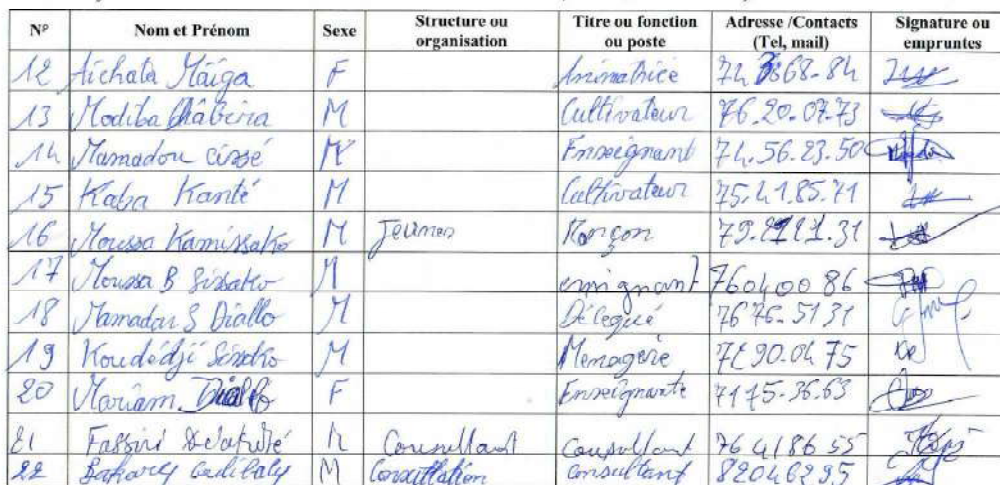 N° Nom et Prénom Sexe Structure ou organisation Titre ou fonction ou poste Adresse /Contacts (Tel, mail) Signature ou empruntes
12 Aichata Maïga F Animatrice
13 Modiba M Cultivateur 76.20.07.73
14 Mamadou cissé M Enseignant 74.56.23.50
15 Kaba Kanté M Cultivateur 75.41.85.71
16 Moussa Kamissoko M Jeunes Maçon
17 Moussa B Sissoko M 76040086
18 Mamadou S Diallo M Délegué 7676.5131
19 Sissoko M Menagère
20 Mariam Diallo F Enseignante 7175.36.63
21 Fassiri M Consultant Consultant 76418655
22 M Consultation Consultant 82046295